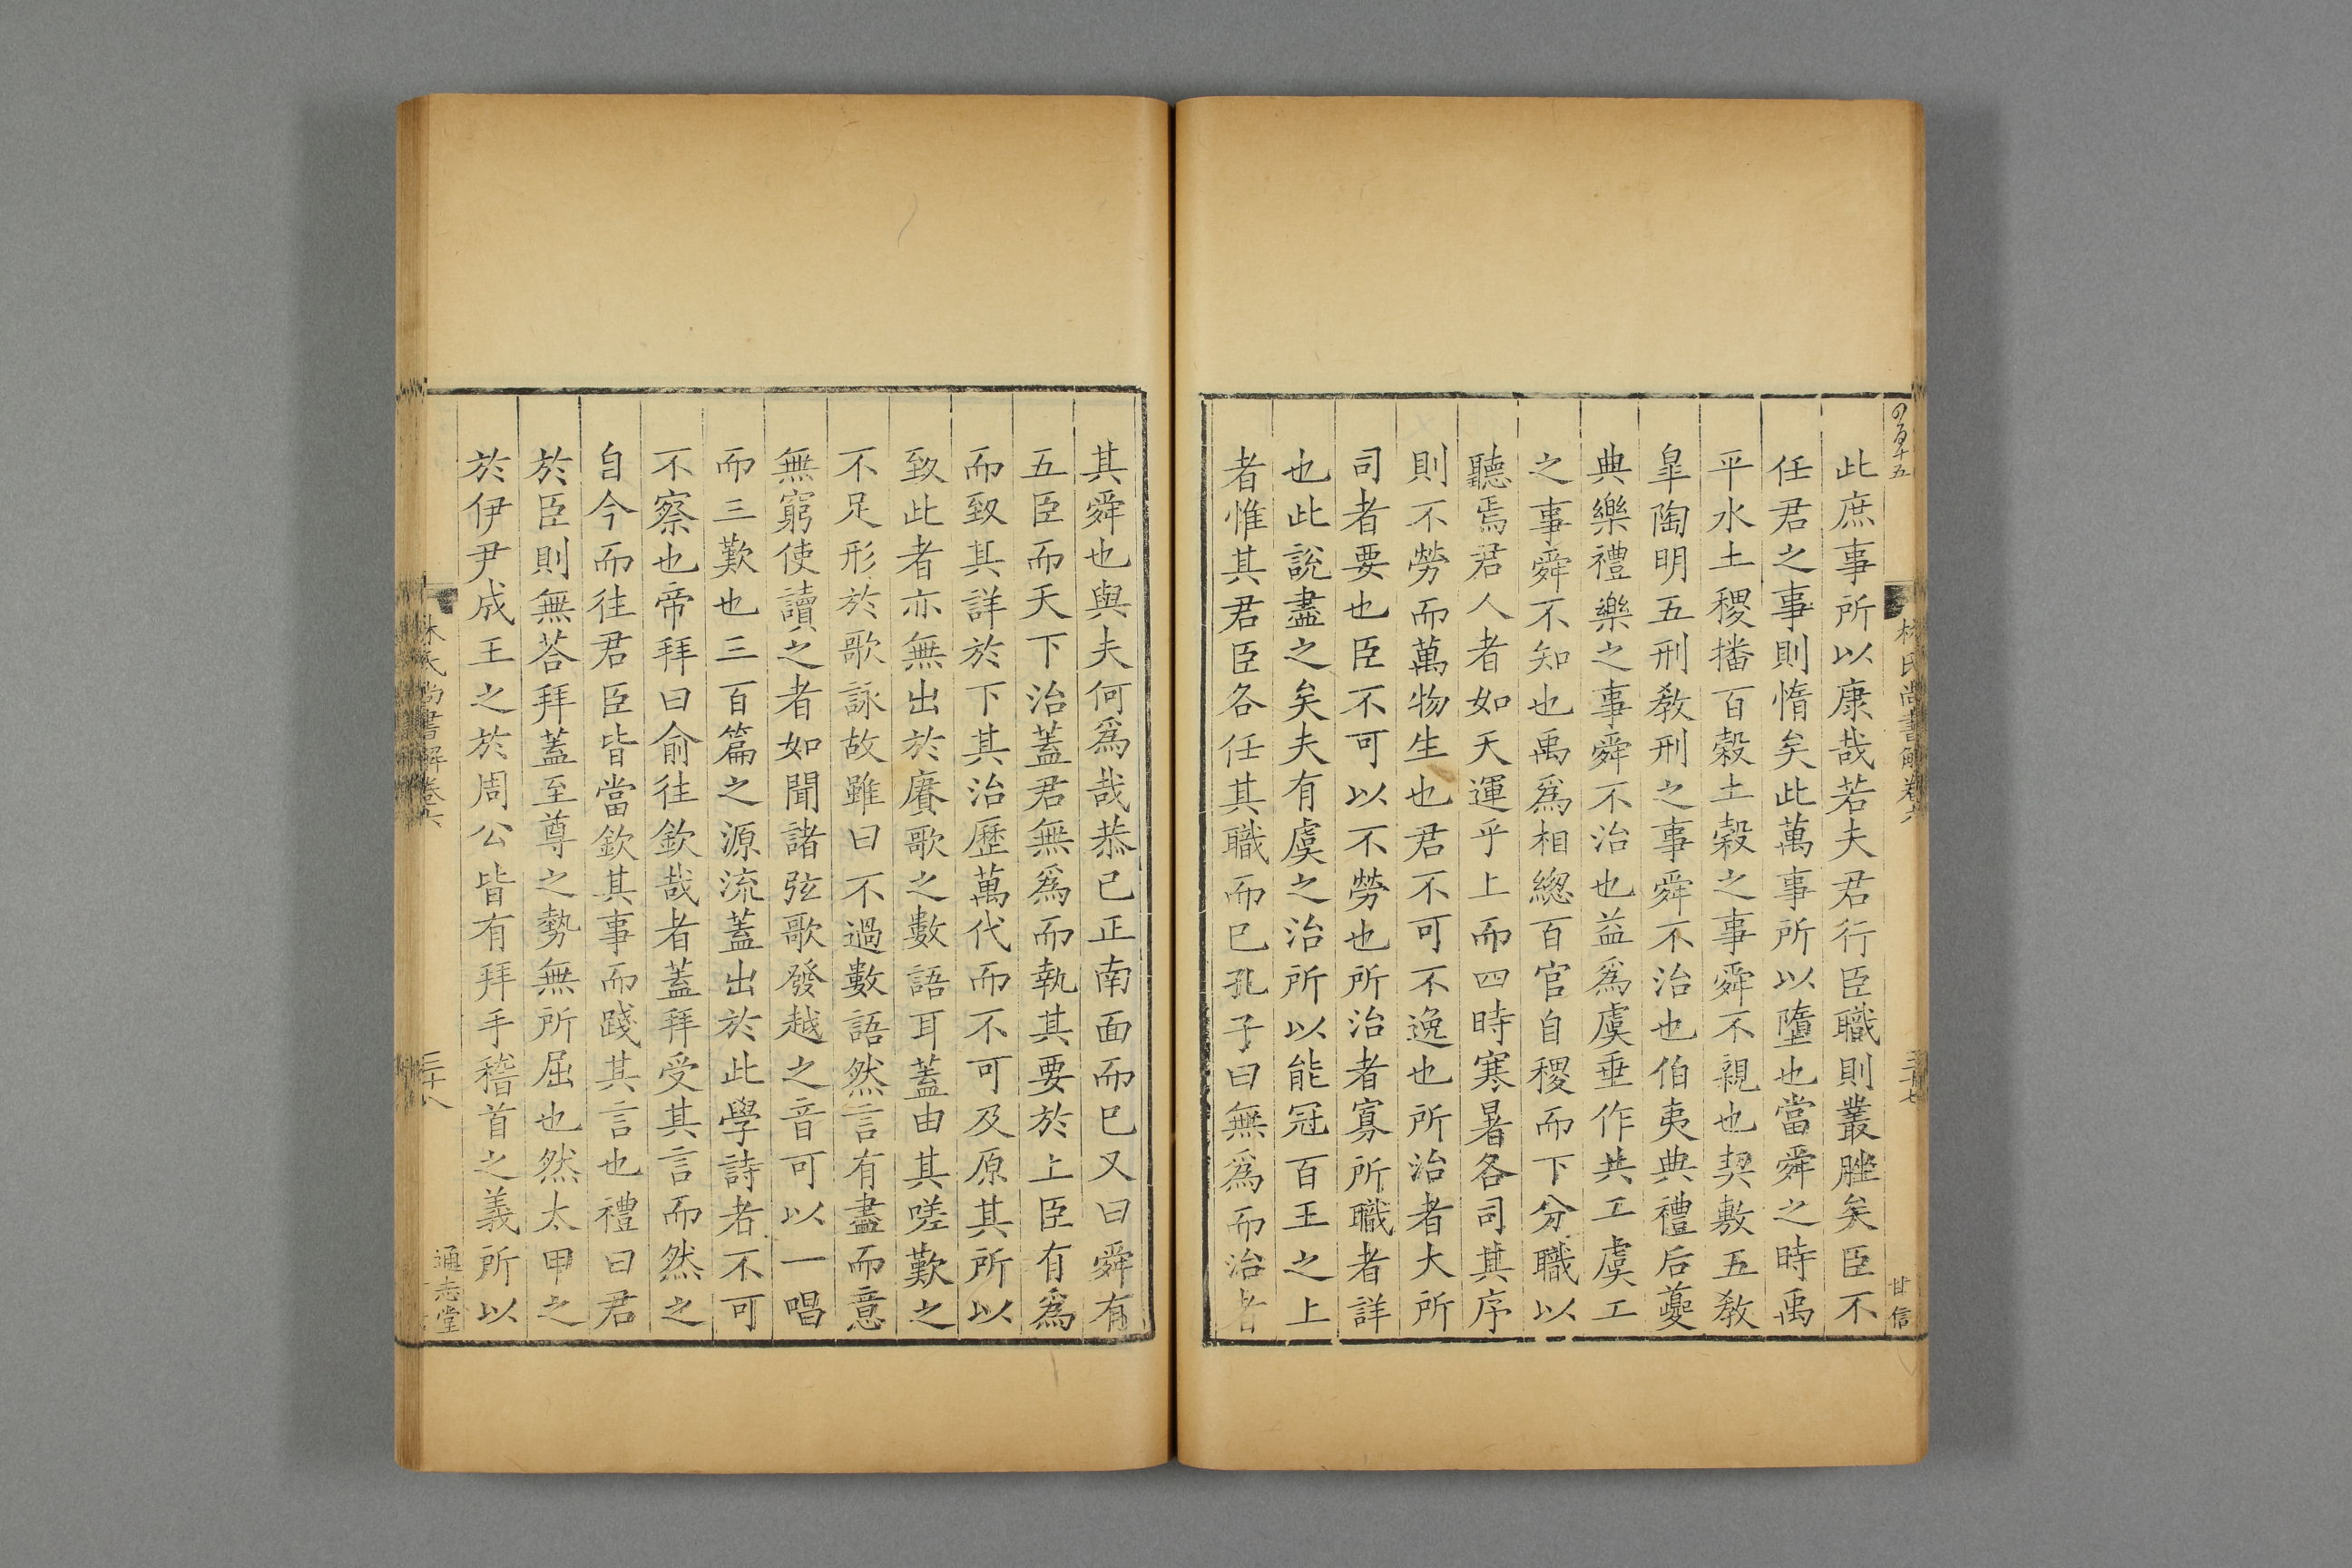 林氏尚書解卷六
三十七
甘信
此庶事所以康哉若夫君行臣職則叢脞矣臣不
任君之事則惰矣此萬事所以墮也當舜之時禹
平水土稷播百穀土穀之事舜不親也契敷五敎
臯陶明五刑敎刑之事舜不治也伯夷典禮后夔
典樂禮樂之事舜不治也益爲虞垂作共工虞工
之事舜不知也禹爲相緫百官自稷而下分職以
聽焉君人者如天運乎上而四時寒暑各司其序
則不勞而萬物生也君不可不逸也所治者大所
司者要也臣不可以不勞也所治者寡所職者詳
也此說盡之矣夫有虞之治所以能冠百王之上
者惟其君臣各任其職而已孔子曰無爲而治者
其舜也與夫何爲哉恭己正南面而已又曰舜有
五臣而天下治蓋君無爲而執其要於上臣有爲
而致其詳於下其治歷萬代而不可及原其所以
致此者亦無出於賡歌之數語耳蓋由其嗟歎之
不足形於歌詠故雖曰不過數語然言有盡而意
無窮使讀之者如聞諸弦歌發越之音可以一唱
而三歎也三百篇之源流蓋出於此學詩者不可
不察也帝拜曰俞往欽哉者蓋拜受其言而然之
自今而往君臣皆當欽其事而踐其言也禮曰君
於臣則無荅拜蓋至尊之勢無所屈也然太甲之
於伊尹成王之於周公皆有拜手稽首之義所以
林氏尚書解卷六
三十八
通志堂